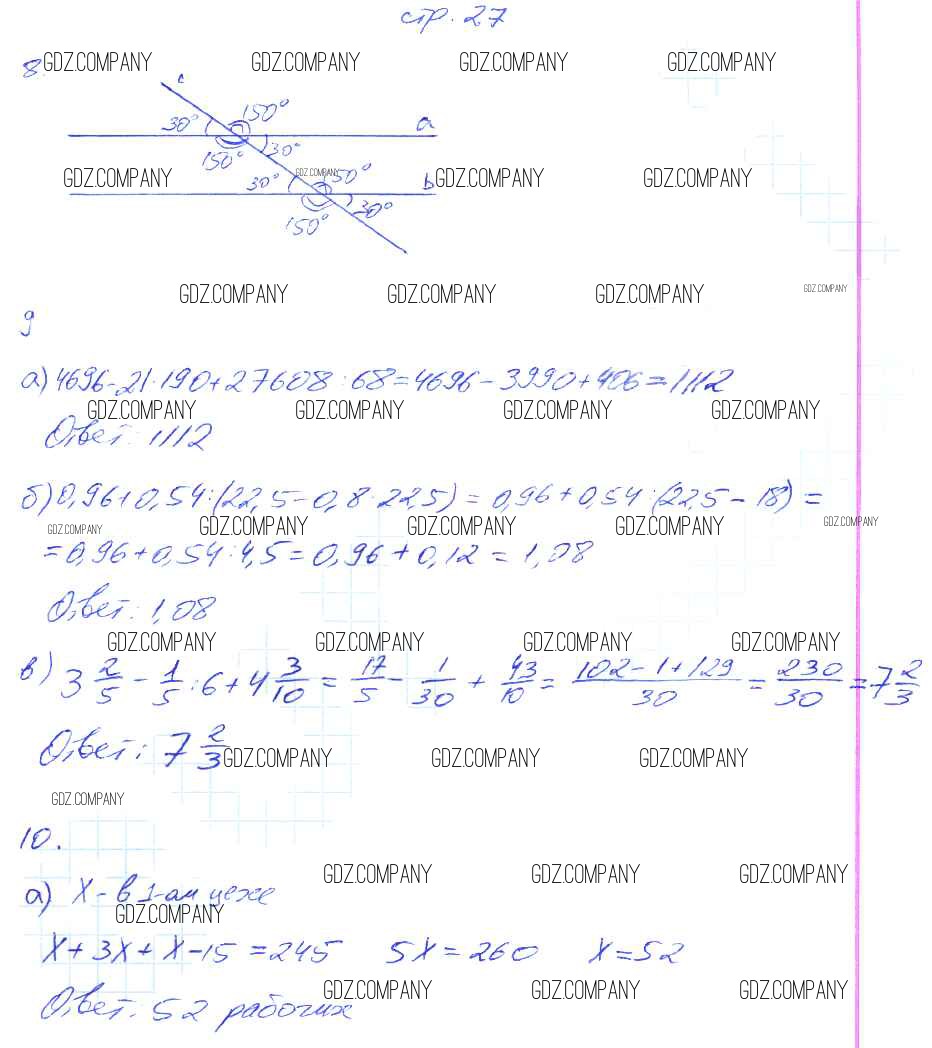 стр. 27
8. GDZ.COMPANY GDZ.COMPANY GDZ.COMPANY GDZ.COMPANY
c
30° 150° a
150° 30°
GDZ.COMPANY 30° GDZ.COMPANY 150° b GDZ.COMPANY GDZ.COMPANY
150° 30°
GDZ.COMPANY GDZ.COMPANY GDZ.COMPANY GDZ.COMPANY
9
а) 4696-21·190+27608:68=4696-3990+406=1112
GDZ.COMPANY GDZ.COMPANY GDZ.COMPANY GDZ.COMPANY
Ответ: 1112
б) 0,96+0,54:(22,5-0,8·22,5) = 0,96+0,54:(22,5-18) =
GDZ.COMPANY GDZ.COMPANY GDZ.COMPANY GDZ.COMPANY GDZ.COMPANY
=0,96+0,54:4,5=0,96+0,12=1,08
Ответ: 1,08
GDZ.COMPANY GDZ.COMPANY GDZ.COMPANY GDZ.COMPANY
в) 3 2/5 - 1/5 : 6 + 4 3/10 = 17/5 - 1/30 + 43/10 = (102-1+129)/30 = 230/30 = 7 2/3
Ответ: 7 2/3 GDZ.COMPANY GDZ.COMPANY GDZ.COMPANY
GDZ.COMPANY
10.
GDZ.COMPANY GDZ.COMPANY GDZ.COMPANY
а) X - в 1-ом цехе
GDZ.COMPANY
X+3X+X-15=245 5X=260 X=52
GDZ.COMPANY GDZ.COMPANY GDZ.COMPANY
Ответ: 52 рабочих